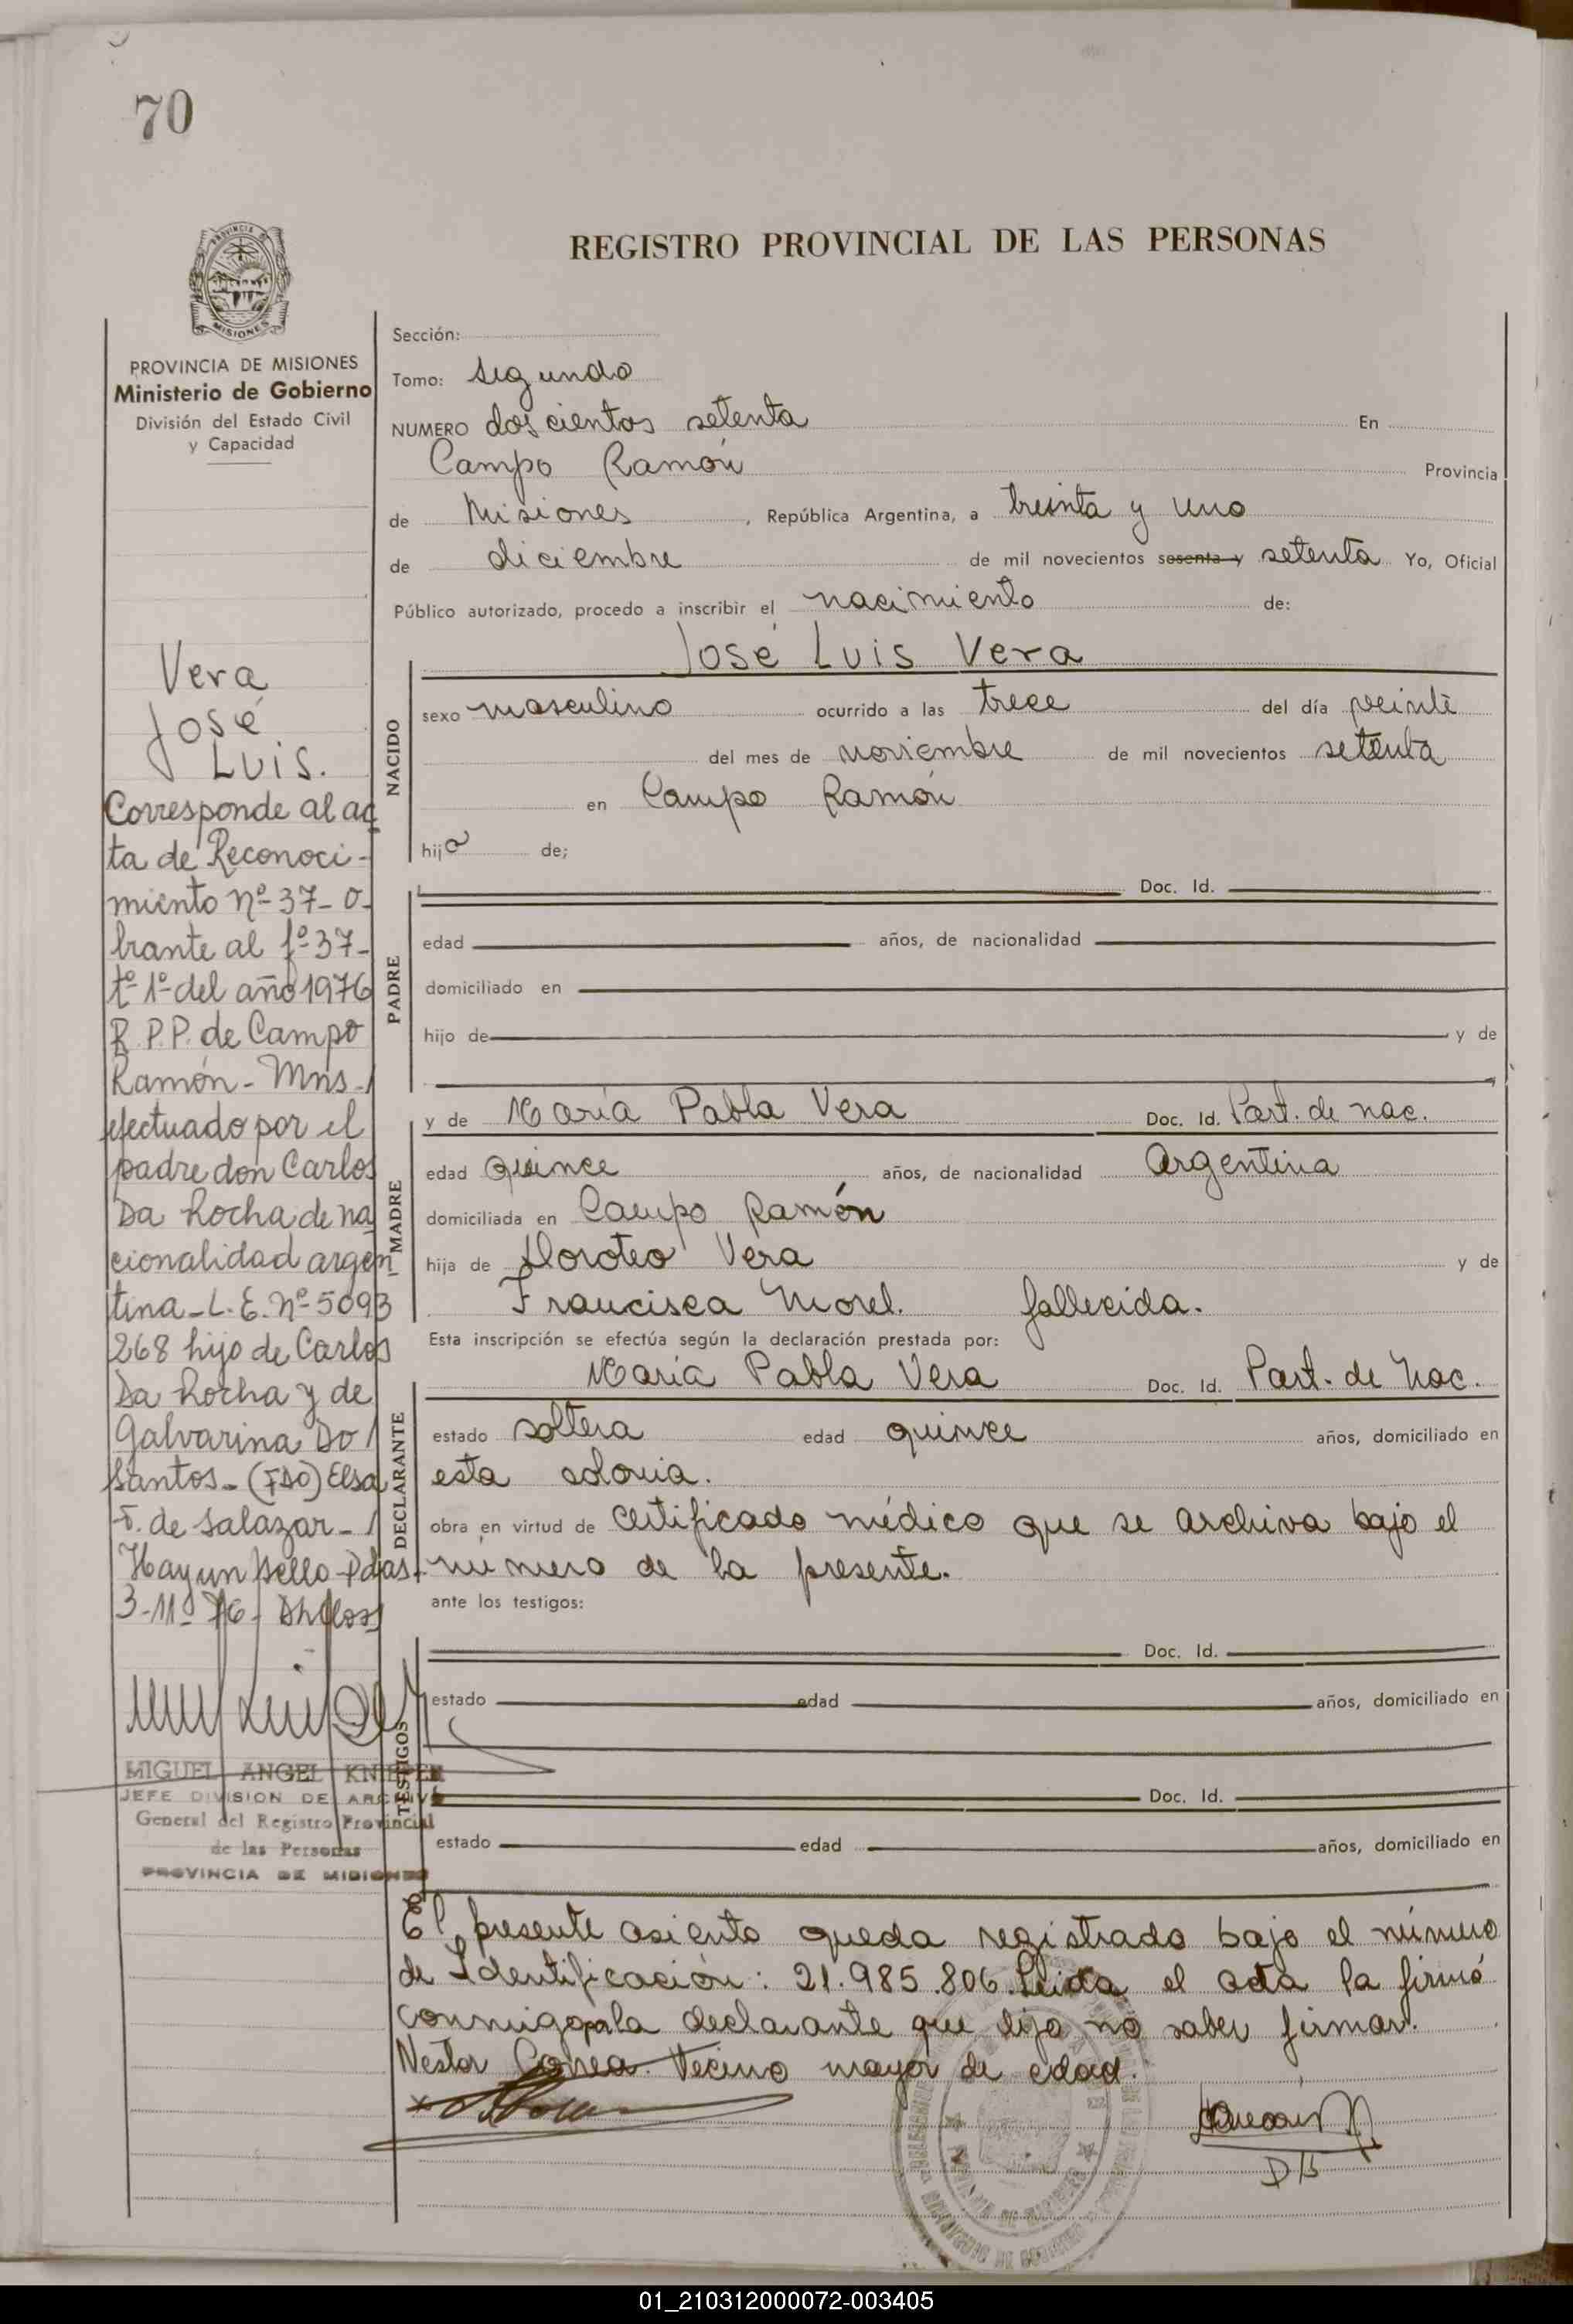 70
REGISTRO PROVINCIAL DE LAS PERSONAS
PROVINCIA DE MISIONES
Ministerio de Gobierno
División del Estado Civil
y Capacidad
Vera
José
Luis.
Corresponde al ac
ta de Reconoci-
miento nº 37- o-
brante al fº 37-
tº 1º del año 1976
R.P.P. de Campo
Ramón - Mns-/
efectuado por el
padre don Carlos
Da Rocha de na
cionalidad argen
tina - L.E. Nº 5093
268 hijo de Carlos
Da Rocha y de
Galvarina Do/
Santos - (FDO) Elsa
F. de Salazar - /
Hay un sello - Pdas-
3-11-76-
MIGUEL ANGEL
JEFE DIVISION DE ARCHIVO
General del Registro Provincial
de las Personas
PROVINCIA DE MISIONES
Sección:
Tomo: segundo
NUMERO doscientos setenta En
Campo Ramón Provincia
de Misiones, República Argentina, a treinta y uno
de diciembre de mil novecientos sesenta y setenta Yo, Oficial
Público autorizado, procedo a inscribir el nacimiento de:
José Luis Vera
NACIDO
sexo masculino ocurrido a las trece del día veinte
del mes de noviembre de mil novecientos setenta
en Campo Ramón
hijo de;
PADRE
Doc. Id.
edad años, de nacionalidad
domiciliado en
hijo de y de
MADRE
y de María Pabla Vera Doc. Id. Part. de nac.
edad quince años, de nacionalidad Argentina
domiciliada en Campo Ramón
hija de Doroteo Vera y de
Francisca Morel. fallecida.
Esta inscripción se efectúa según la declaración prestada por:
DECLARANTE
María Pabla Vera Doc. Id. Part. de Nac.
estado soltera edad quince años, domiciliado en
esta colonia.
obra en virtud de certificado médico que se archiva bajo el
número de la presente.
ante los testigos:
TESTIGOS
Doc. Id.
estado edad años, domiciliado en
Doc. Id.
estado edad años, domiciliado en
El presente asiento queda registrado bajo el número
de Identificación: 21.985.806. Leída el acta la firmó
conmigo por la declarante que dijo no saber firmar.
Nestor Correa. Vecino mayor de edad.
01_210312000072-003405